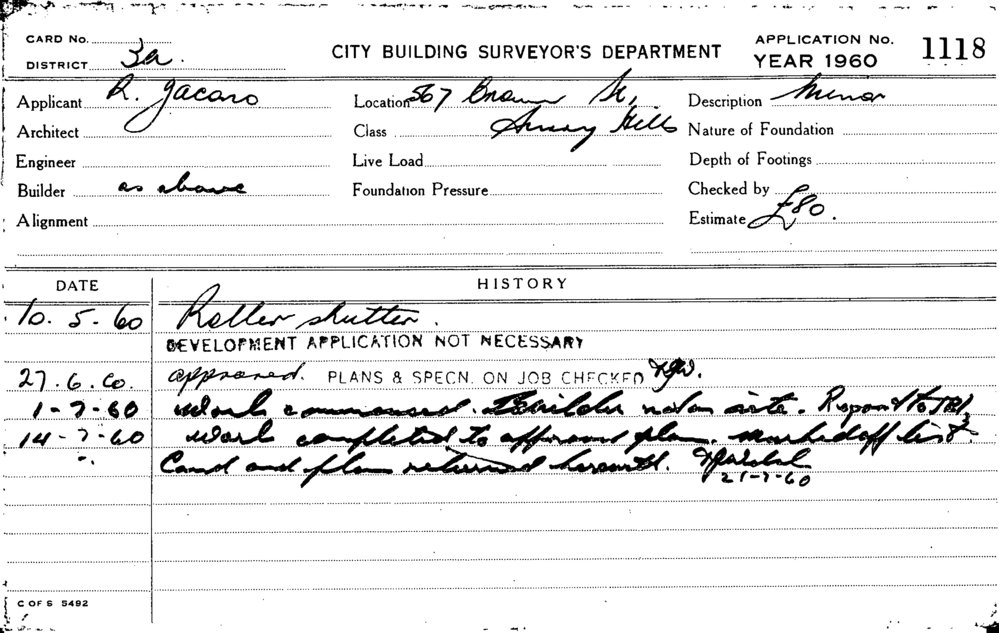 CARD No.
DISTRICT 3a.
CITY BUILDING SURVEYOR'S DEPARTMENT
APPLICATION No. 1118
YEAR 1960
Applicant R. Jacono
Location 567 St,
Description Minor
Architect
Class Surry Hills
Nature of Foundation
Engineer
Live Load
Depth of Footings
Builder as above
Foundation Pressure
Checked by
Alignment
Estimate £80.
DATE HISTORY
10. 5. 60 Roller shutter.
DEVELOPMENT APPLICATION NOT NECESSARY
27. 6. 60. approved. PLANS & SPECN. ON JOB CHECKED
1-7-60 Work commenced. Builder not on site. Report to
14-7-60 Work completed to approved plan. Marked off list.
Card and plan returned herewith.
21-7-60
C OF S 5492